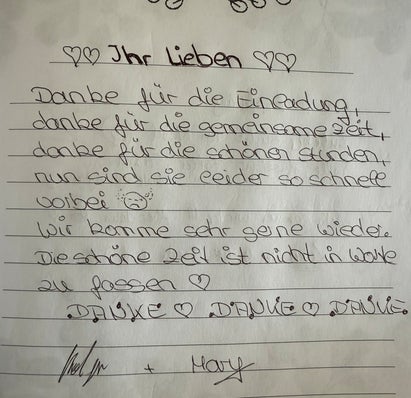 ♡♡ Ihr Lieben ♡♡
Danke für die Einladung,
danke für die gemeinsame Zeit,
danke für die schönen Stunden,
nun sind sie leider so schnell
vorbei 😢
Wir komme sehr gerne wieder.
Die schöne Zeit ist nicht in Worte
zu fassen ♡
DANKE ♡ DANKE ♡ DANKE
+ Mary